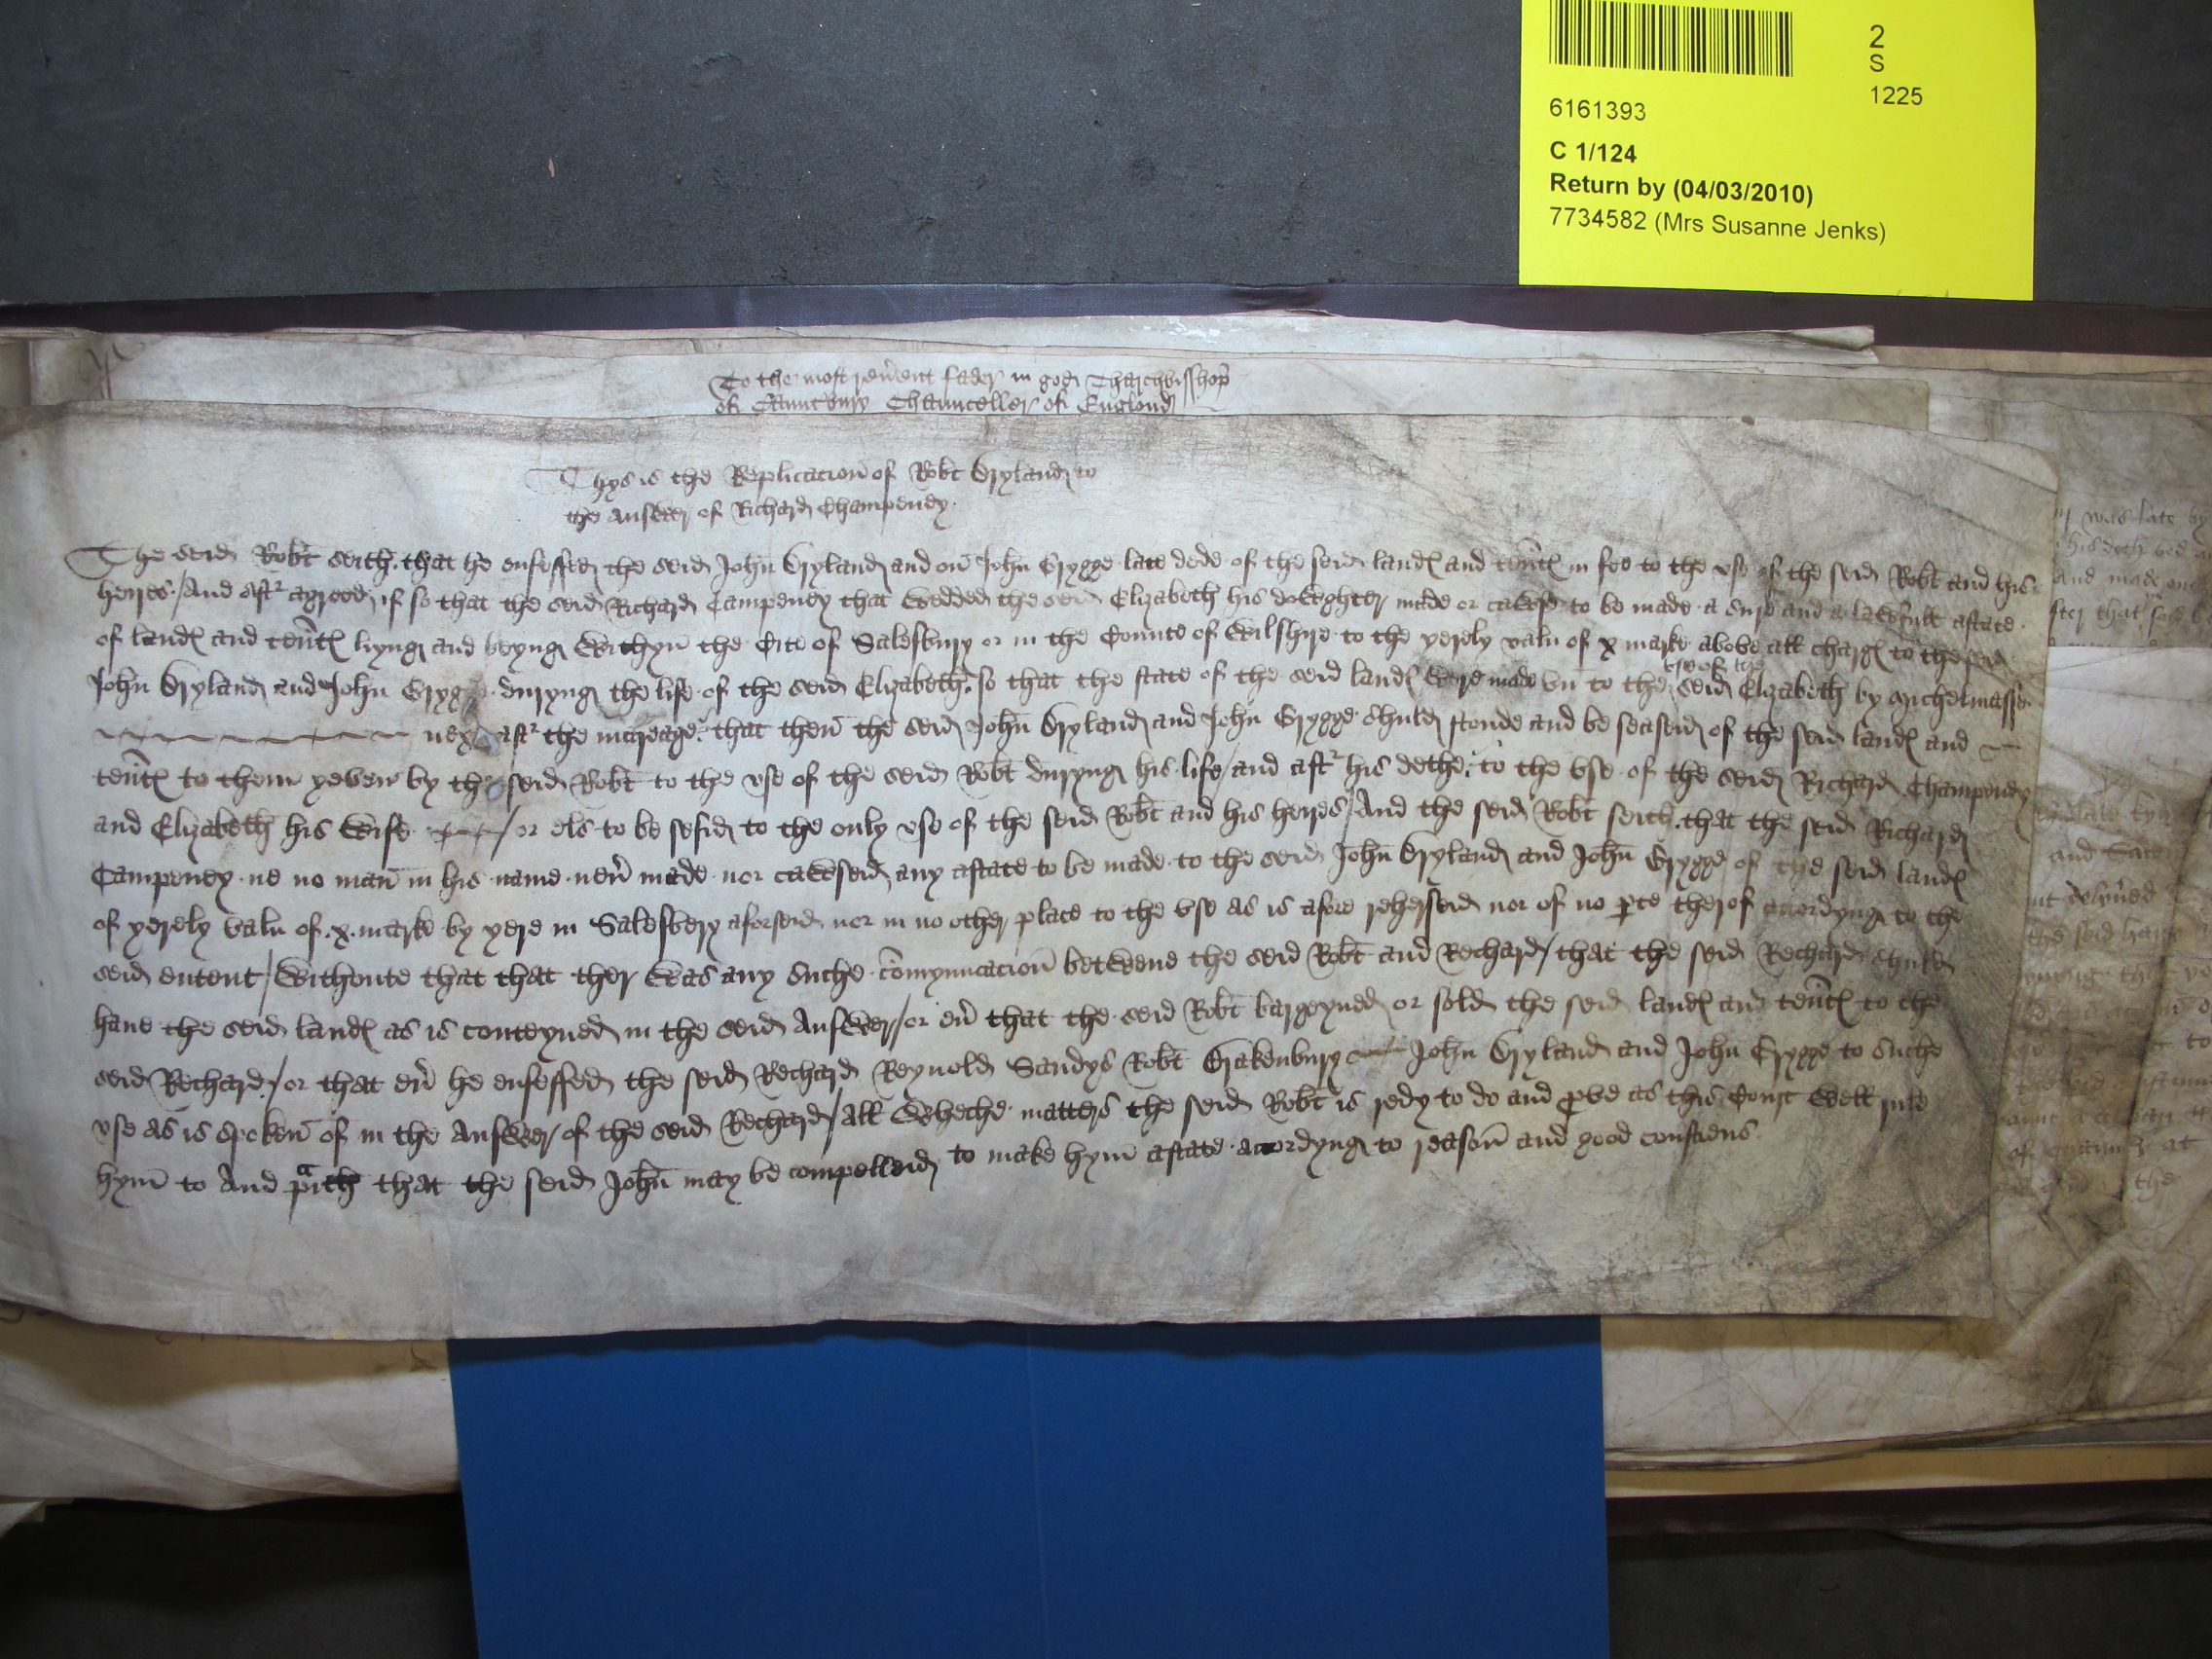 2
S
1225
6161393
C 1/124
Return by (04/03/2010)
7734582 (Mrs Susanne Jenks)
To the most reuerent fader in god Tharchbisshop
of Cauntbury Chaunceller of England
Thys is the Replicacion of Robt Dryland to
the Answer of Richard Champeney
The seid Robt seith that he enfeffed the seid John Dryland and on John Grygge late dede of the seid landes and tentes in fee to the vse of the seid Robt and his
heyres / And aftr agreed if so that the seid Richard Campeney that wedded the seid Elizabeth his dowghter made or cawsse to be made a sure and a lawfull astate
of landes and tentes liyng and beyng withyn the Cite of Salesbury or in the Counte of Wilshyre to the yerely valu of x marke above all charges to the seid
John Dryland and John Grygge duryng the life of the seid Elizabeth so that the state of the seid landes were made vn to the vse of the seid Elizabeth by michelmasse
next aftr the mareage that then the seid John Dryland and John Grygge shuld stonde and be seaseid of the seid landes and
tentes to them yeven by the seid Robt to the vse of the seid Robt duryng his life / and aftr his dethe to the vse of the seid Richard Champeney
and Elizabeth his wife / or els to be sesid to the only vse of the seid Robt and his heyres / And the seid Robt seith that the seid Richard
Campeney ne no man in his name neu made nor cawseid any astate to be made to the seid John Dryland and John Grygge of the seid landes
of yerely valu of .x. marke by yere in Salesbery aforseid nor in no other place to the vse as is afore reherseid nor of no pte therof accordyng to the
seid entent / withoute that that ther was any suche comynicacion betwene the seid Robt and Rechard / that the seid Rechard shuld
haue the seid landes as is conteyned in the seid Answer / or eu that the seid Robt bargeyned or sold the seid landes and tentes to the
seid Rechard / or that eu he enfeffed the seid Rechard Reynold Sandys Robt Brakenbury John Dryland and John Grygge to suche
vse as is spoken of in the Answer of the seid Rechard / all wheche matters the seid Robt is redy to do and pve as this Court well rule
hym to And praith that the seid John may be compelleid to make hym astate acordyng to reason and good consiens